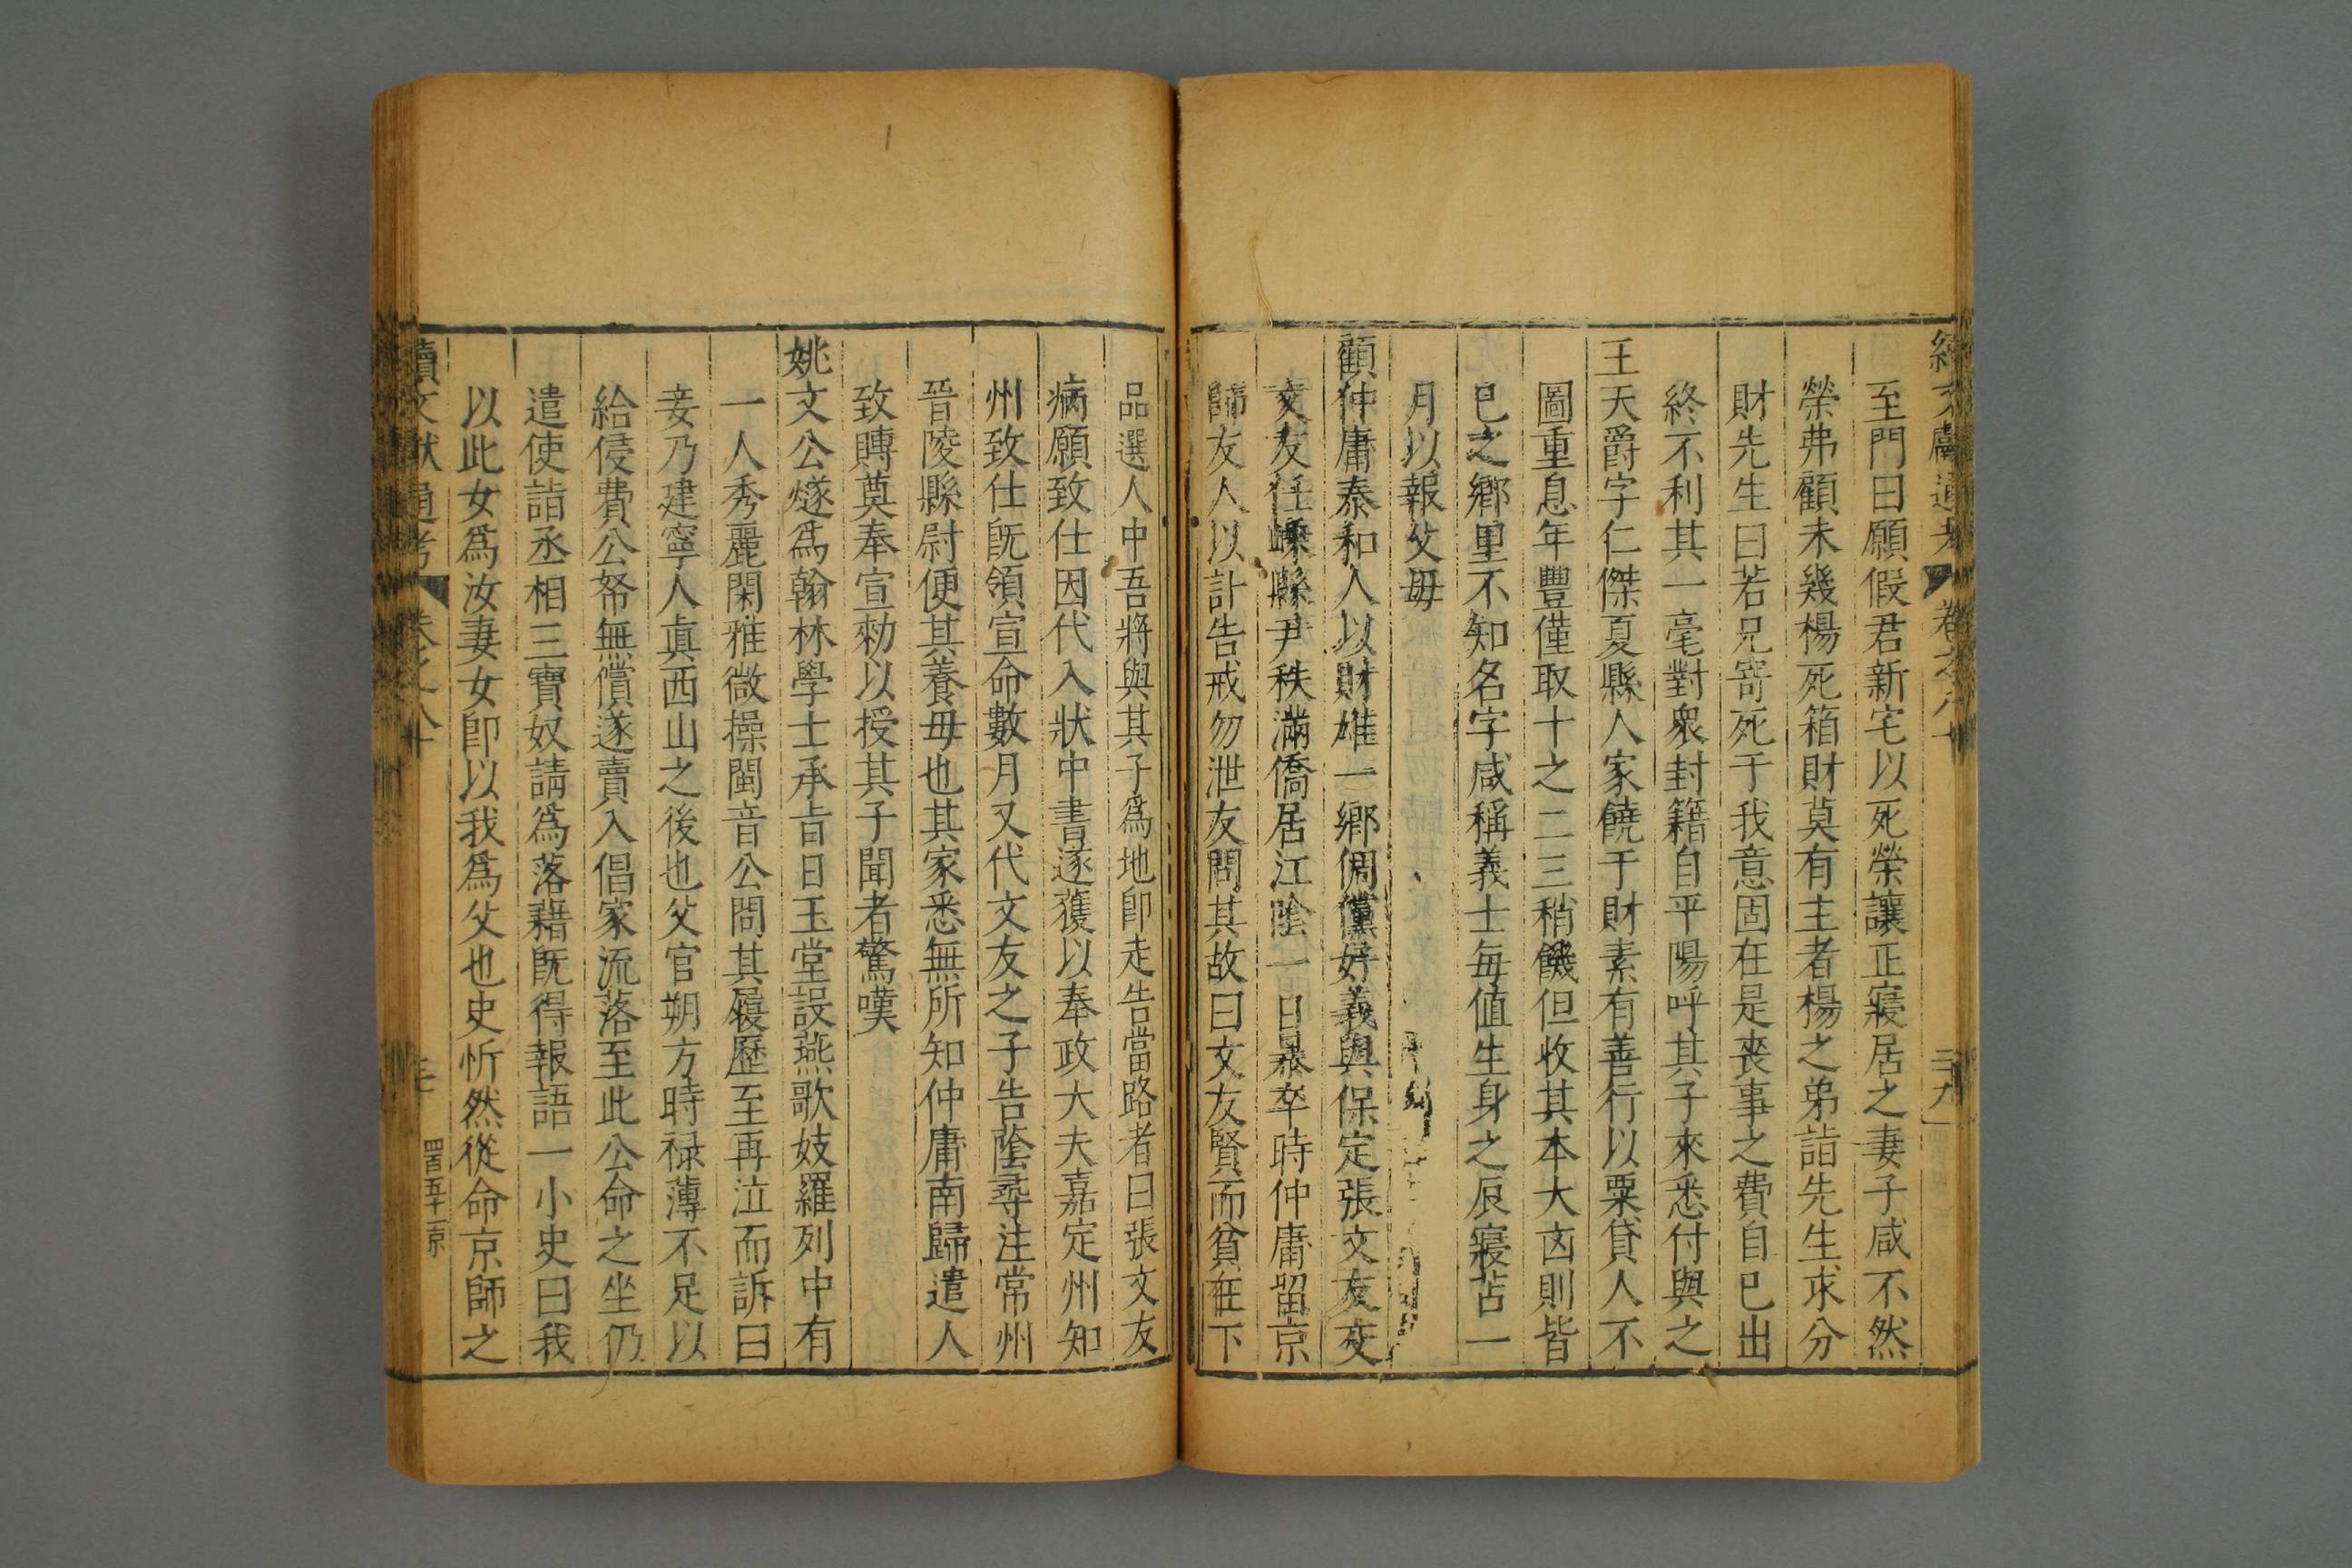 續文獻通考 卷之八十 三九
至門曰願假君新宅以死榮讓正寢居之妻子咸不然
榮弗顧未幾楊死箱財莫有主者楊之弟詣先生求分
財先生曰若兄寄死于我意固在是喪事之費自已出
終不利其一毫對衆封籍自平陽呼其子來悉付與之
王天爵字仁傑夏縣人家饒于財素有善行以粟貸人不
圖重息年豐僅取十之二三稍饑但收其本大㐫則皆
已之鄉里不知名字咸稱義士每值生身之辰寢苫一
月以報父母
顧仲庸泰和人以財雄一鄉倜儻好義與保定張文友交
文友任嵊縣尹秩滿僑居江陰一日暴卒時仲庸留京
師友人以計告戒勿泄友問其故曰文友賢而貧在下
品選人中吾將與其子爲地卽走告當路者曰張文友
病願致仕因代入狀中書遂獲以奉政大夫嘉定州知
州致仕旣領宣命數月又代文友之子告蔭尋注常州
晉陵縣尉便其養母也其家悉無所知仲庸南歸遣人
致賻奠奉宣勑以授其子聞者驚嘆
姚文公燧爲翰林學士承旨日玉堂設燕歌妓羅列中有
一人秀麗閑雅微操閩音公問其履歷至再泣而訴曰
妾乃建寧人真西山之後也父官朔方時禄薄不足以
給侵費公帑無償遂賣入倡家流落至此公命之坐仍
遣使詣丞相三寶奴請爲落籍旣得報語一小史曰我
以此女爲汝妻女卽以我爲父也史忻然從命京師之
續文獻通考 卷之八十 四百五十一 京